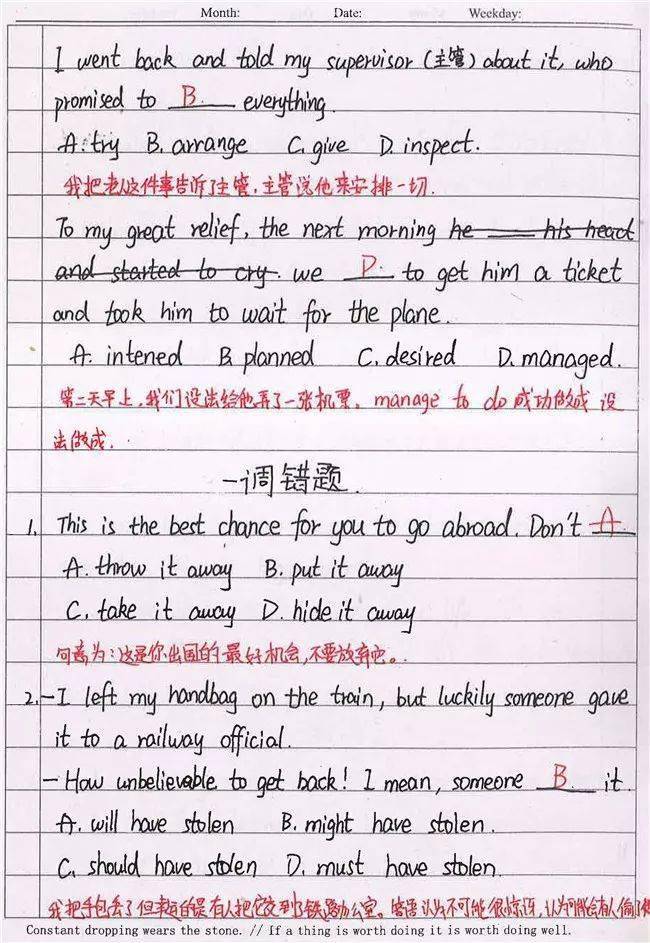 Month: Date: Weekday:
I went back and told my supervisor (主管) about it, who
promised to B everything.
A. try B. arrange C. give D. inspect.
我把老人这件事告诉了主管,主管说他来安排一切.
To my great relief, the next morning he ___ his head
and started to cry. we D to get him a ticket
and took him to wait for the plane.
A. intened B. planned C. desired D. managed.
第二天早上,我们设法给他弄了一张机票。manage to do 成功做成 设
法做成.
一调错题.
1. This is the best chance for you to go abroad. Don't A
A. throw it away B. put it away
C. take it away D. hide it away
句意为:这是你出国的最好机会,不要放弃它。
2. —I left my handbag on the train, but luckily someone gave
it to a railway official.
—How unbelievable to get back! I mean, someone B it.
A. will have stolen B. might have stolen.
C. should have stolen D. must have stolen.
我把手包丢了但幸运的是有人把它交到了铁路办公室。答语认为不可能很惊讶,认为可能会有人偷了
Constant dropping wears the stone. // If a thing is worth doing it is worth doing well.